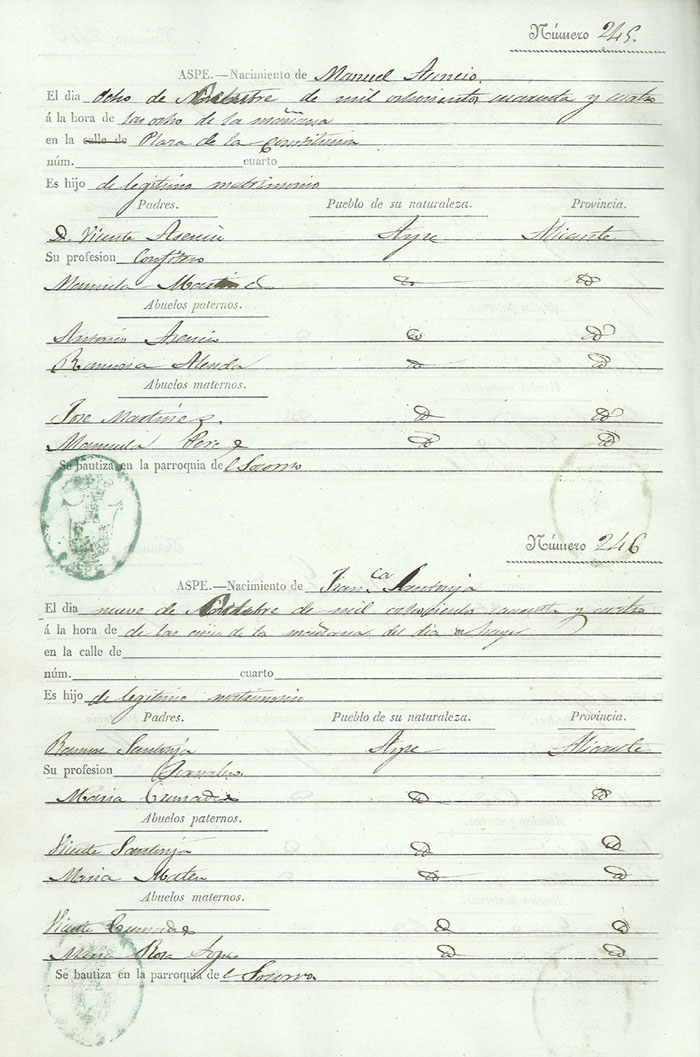 Número 245.
ASPE.—Nacimiento de Manuel Asencio.
El dia ocho de de mil ochocientos cuarenta y cuatro
á la hora de las ocho de la mañana
en la calle de Plaza de la Constitucion
núm. cuarto
Es hijo de legitimo matrimonio
Padres. Pueblo de su naturaleza. Provincia.
D. Vicente Asencio Aspe Alicante
Su profesion
Manuela Martinez id id
Abuelos paternos.
Antonio Asencio id id
Ramona Alenda id id
Abuelos maternos.
Jose Martinez. id id
Manuela Perez id id
Se bautiza en la parroquia de el Socorro
Número 246
ASPE.—Nacimiento de Fran.ca Santonja
El dia nueve de de mil ochociento cuarenta y cuatro
á la hora de de las cinco de la mañana del dia de hayer
en la calle de
núm. cuarto
Es hijo de legitimo matrimonio
Padres. Pueblo de su naturaleza. Provincia.
Ramon Santonja Aspe Alicante
Su profesion
Maria Cremades id id
Abuelos paternos.
Vicente Santonja id id
Maria Mateu id id
Abuelos maternos.
Vicente Cremades id id
Maria Rosa id id
Se bautiza en la parroquia de el Socorro